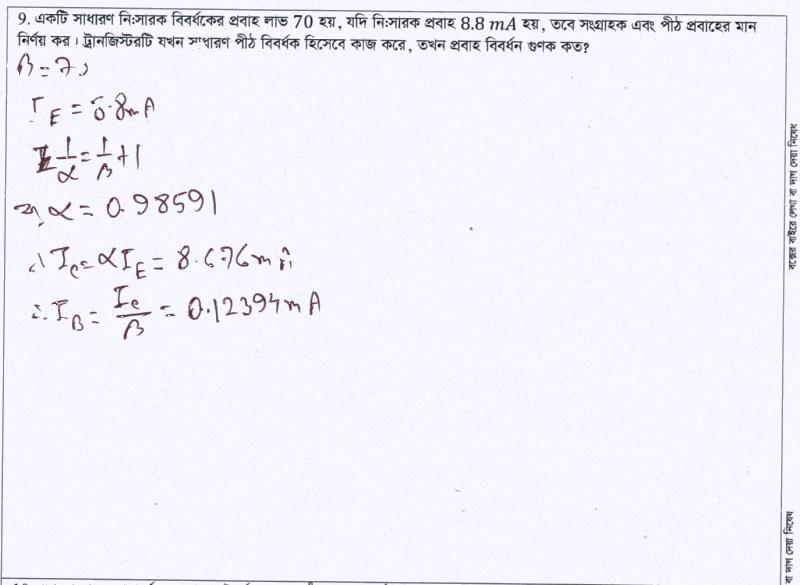 9. একটি সাধারণ নিঃসারক বিবর্ধকের প্রবাহ লাভ 70 হয়, যদি নিঃসারক প্রবাহ 8.8 mA হয়, তবে সংগ্রাহক এবং পীঠ প্রবাহের মান
নির্ণয় কর। ট্রানজিস্টরটি যখন সাধারণ পীঠ বিবর্ধক হিসেবে কাজ করে, তখন প্রবাহ বিবর্ধন গুণক কত?
β = 70
I_E = 8.8mA
1/α = 1/β + 1
বা, α = 0.98591
∴ I_C = αI_E = 8.676mA
∴ I_B = I_C/β = 0.12394mA
বক্সের বাইরে লেখা বা দাগ দেয়া নিষেধ
বা দাগ দেয়া নিষেধ